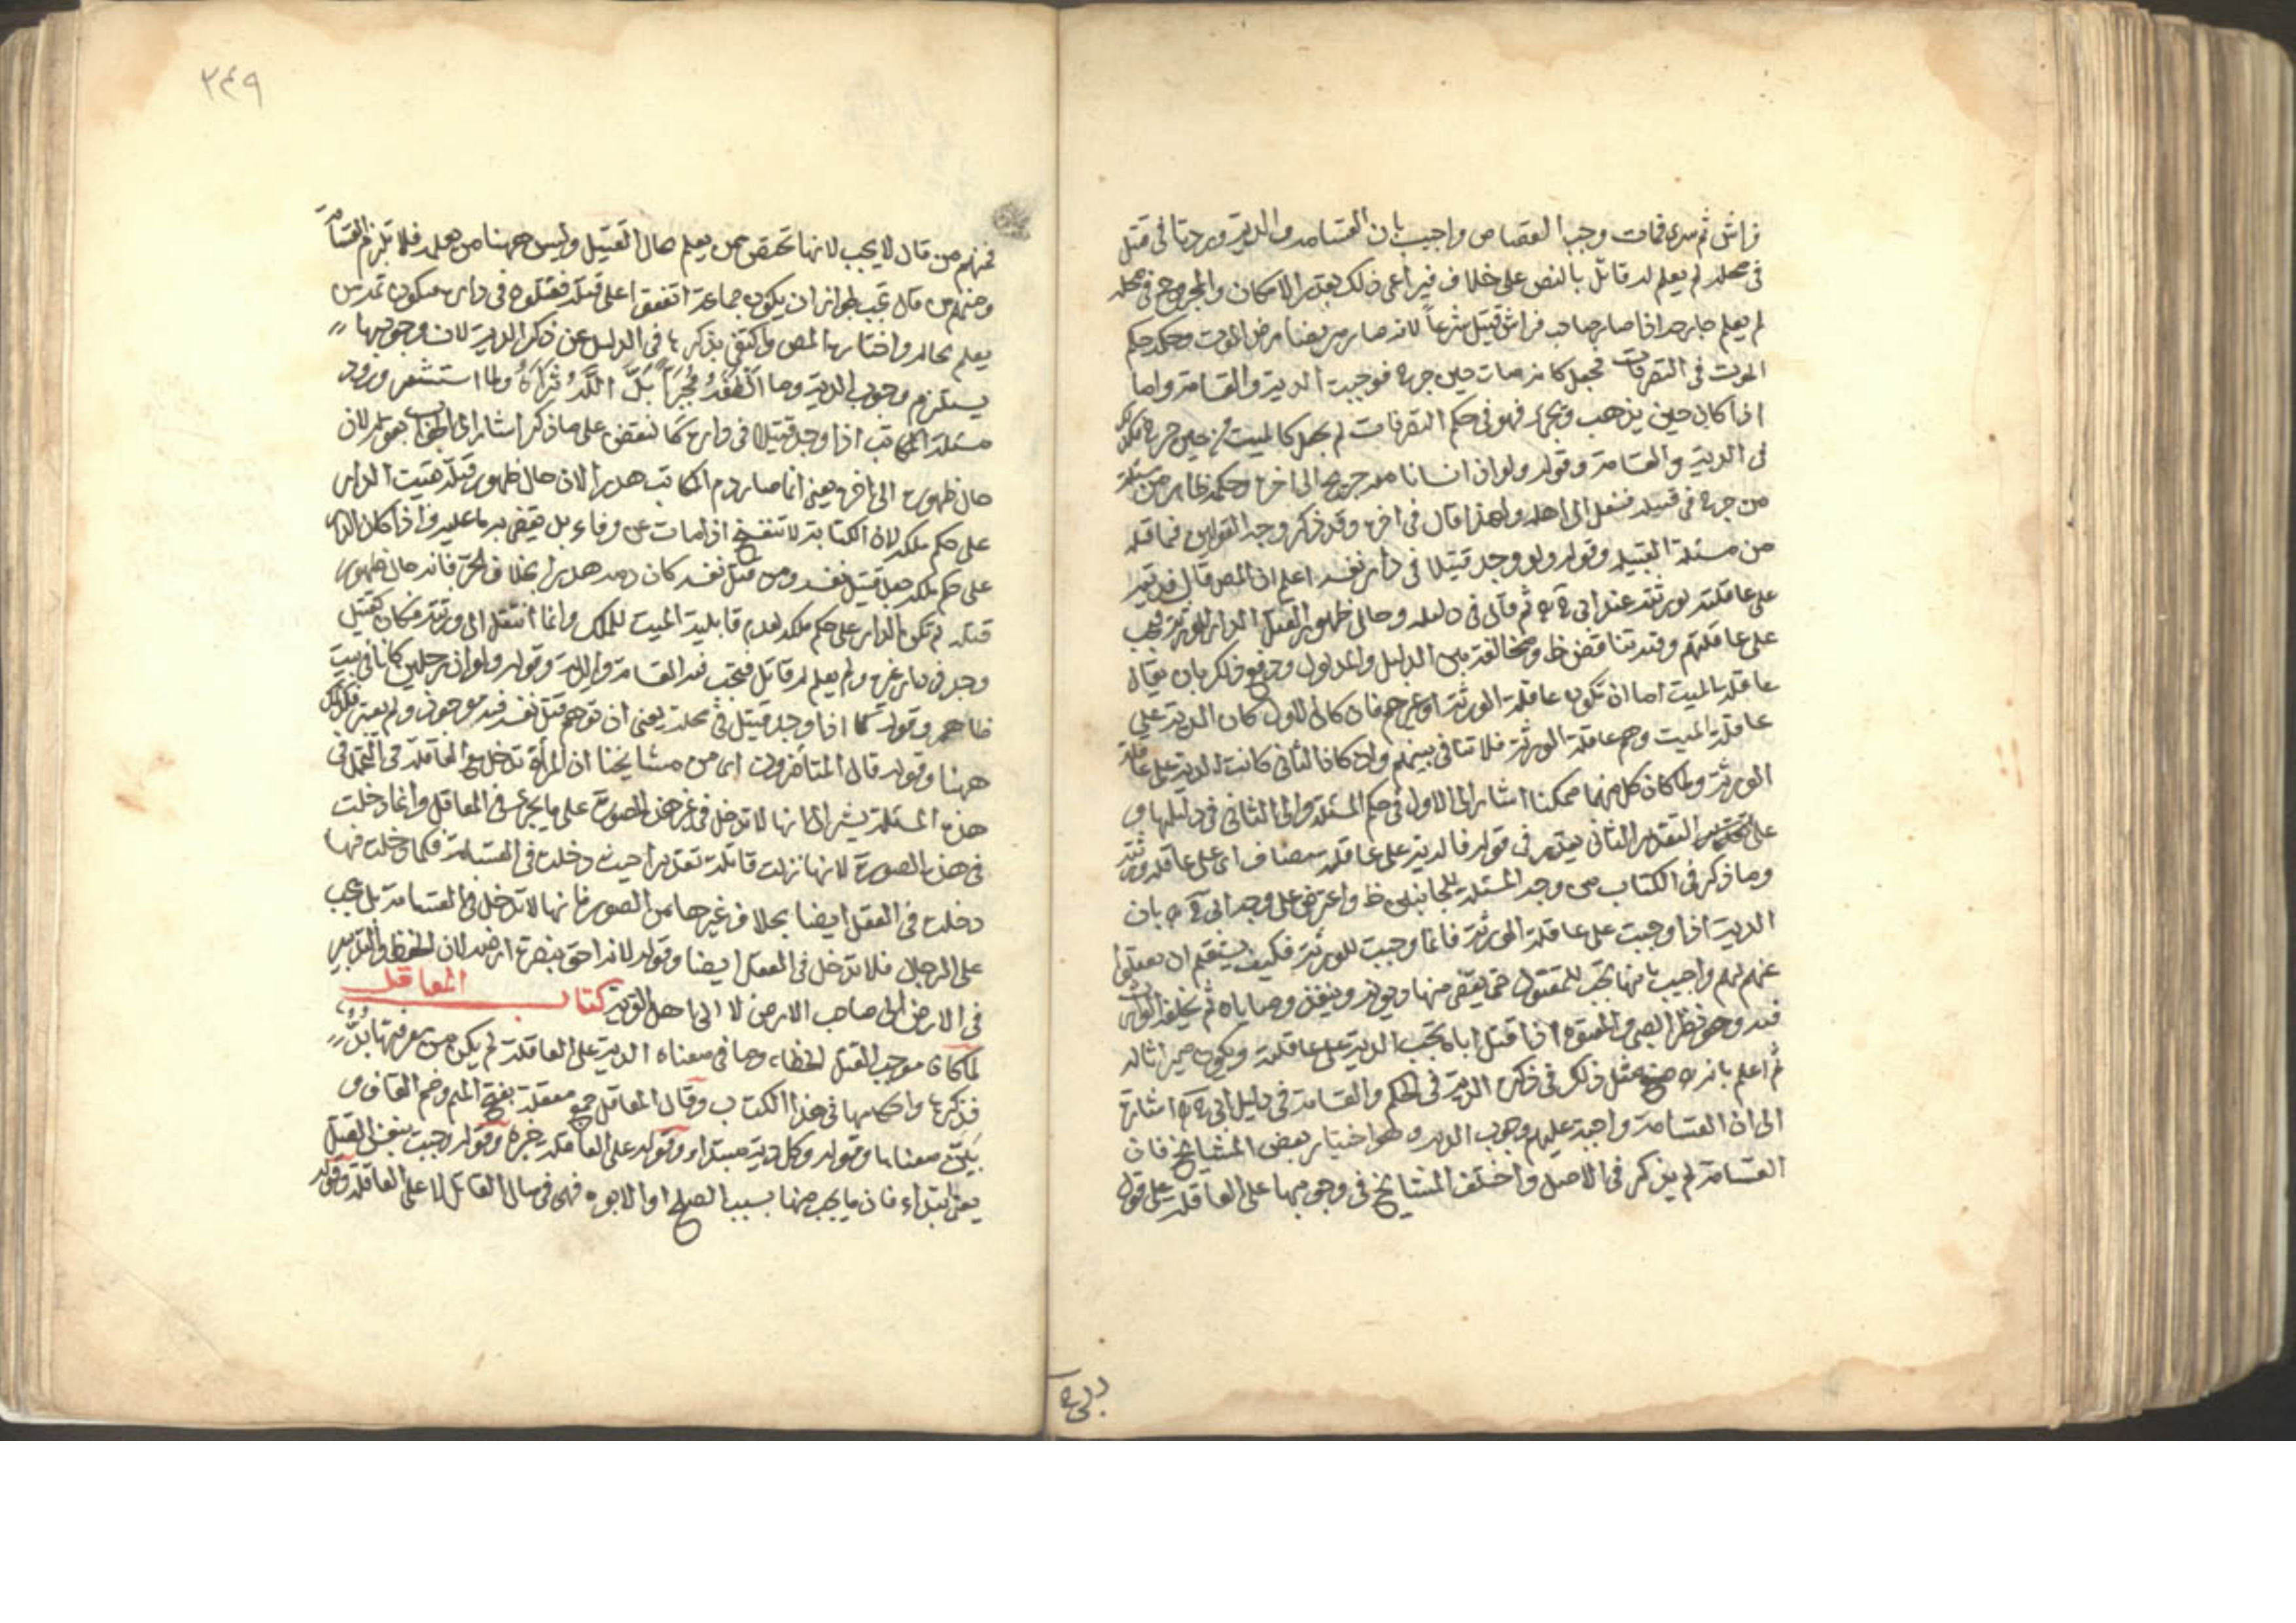 فراش ثم سرى فمات وجب القصاص واجيب بان القسامة والدية وردتا في قتيل
في محلة لم يعلم له قاتل بالنص على خلاف فيراعى ذلك بقدر الامكان والمجروح في محلة
لم يعلم جارحه اذا صار صاحب فراش قتيل شرعاً لانه صار مريضا مرض الموت وحكمه حكم
الموت في التصرفات فجعل كانه مات حين جرح فوجبت الدية والقسامة واما
اذا كان حين يذهب ويجئ فهو في حكم التصرفات لم يجعل كالميت من حين جرح فكذلك
في الدية والقسامة وقوله ولو ان انسانا معه جريح الى اخره وحكمه ظاهر من مسئلة
من جرح في قبيلة فنقل الى اهله ولهذا قال في اخره وقد ذكر وجه القولين فيما قبله
من مسئلة القبيلة وقوله ولو وجد قتيلا في دار نفسه اعلم ان المص قال فديته
على عاقلته لورثته عند ابي ح ره ثم قال في دليله وحال ظهور القتل الدار للورثة فيجب
على عاقلتهم وفيه تناقض ظ ومخالفة بين الدليل والمدلول ودفع ذلك بان يقال
عاقلة الميت اما ان تكون عاقلة الورثة او غيرهم فان كان الاول كان الدية على
عاقلة الميت وهم عاقلة الورثة فلا تنافي بينهم وان كان الثاني كانت الدية على عاقلة
الورثة ولما كان كل منهما ممكنا اشار الى الاول في حكم المسئلة والى الثاني في دليلها و
على التقدير الثاني يقدر في قوله فالدية على عاقلته مضاف اى على عاقلة ورثته
وما ذكر في الكتاب من وجه المسئلة للجانبين ظ واعترض على وجه ابي ح ره بان
الدية اذا وجبت على عاقلة الورثة فانما وجبت للورثة فكيف يستقيم ان يعقلوا
عنهم لهم واجيب بانها تجب للمقتول حتى يقضى منها ديونه وينفذ وصاياه ثم يخلفه الوارث
فيه وهو نظير الصبي والمعتوه اذا قتل اباه تجب الدية على عاقلته ويكون ميراثا له
ثم اعلم بانه مثل ذلك في ذكر الدية في الحكم والقسامة في دليل ابي ح ره اشارة
الى ان القسامة واجبة عليهم وجوب الدية وهو اختيار بعض المشايخ فان
القسامة لم يذكر في الاصل واختلف المشايخ في وجوبها على العاقلة على قول
بلغ
٣٤٩
فمنهم من قال لا يجب لانها تختص بمن يعلم حال القتيل وليس ههنا من يعلمه فلا تلزم القسامة
ومنهم من قال تجب لجواز ان يكون جماعة اتفقوا على قتله فقتلوه في داره فيكون ثمة من
يعلم بحاله واختارها المص واكتفى بذكرها في الدليل عن ذكر الدية لان وجوبها
يستلزم وجوب الدية ولما استشعر ورود
مسئلة المكاتب اذا وجد قتيلا في داره كما نقض على ما ذكر اشار الى الجواب بقوله لان
حال ظهوره الى اخره يعني انما صار دم المكاتب هدرا لان حال ظهور قتله بقيت الدار
على حكم ملكه لان الكتابة لا تنفسخ اذا مات عن وفاء بل يقضى به ما عليه واذا كان الدار
على حكم ملكه جعل قتيل نفسه ومن قتل نفسه كان دمه هدرا بخلاف الحر فانه حال ظهور
قتله لم تكن الدار على حكم ملكه لعدم قابلية الميت للملك وانما انتقل الى ورثته فكان كقتيل
وجد في دار غيره ولم يعلم له قاتل فتجب فيه القسامة والدية وقوله ولو ان رجلين كانا في بيت
ظاهر وقوله كما اذا وجد قتيل في محلة يعني ان توهم قتل نفسه فيه موجود ولم يعتبر فكذلك
ههنا وقوله قال المتأخرون اى من مشايخنا ان المرأة تدخل مع العاقلة في التحمل في
هذه المسئلة يشير الى انها لا تدخل في غير هذه الصورة على ما يجئ في المعاقل وانما دخلت
في هذه الصورة لانها نزلت قاتلة تقديرا حيث دخلت في القسامة فكما دخلت فيها
دخلت في العقل ايضا بخلاف غيرها من الصور فانها لا تدخل في القسامة بل يجب
على الرجال فلا تدخل في العقل ايضا وقوله لانه احق بنصرة ارضه لان الحفظ والتدبير
في الارض الى صاحب الارض لا الى اهل القرية كتاب المعاقل
لما كان موجب القتل الخطاء وما في معناه الدية على العاقلة لم يكن من معرفتها بدٌّ
فذكرها واحكامها في هذا الكتاب وقال المعاقل جمع معقلة بفتح الميم وضم القاف و
بيّن معناها وقوله وكل دية مبتداء وقوله على العاقلة خبره وقوله وجبت بنفس القتل
يعني ابتداء فان ما يجب منها بسبب الصلح او الابوة فهى في مال القاتل لا على العاقلة وقوله